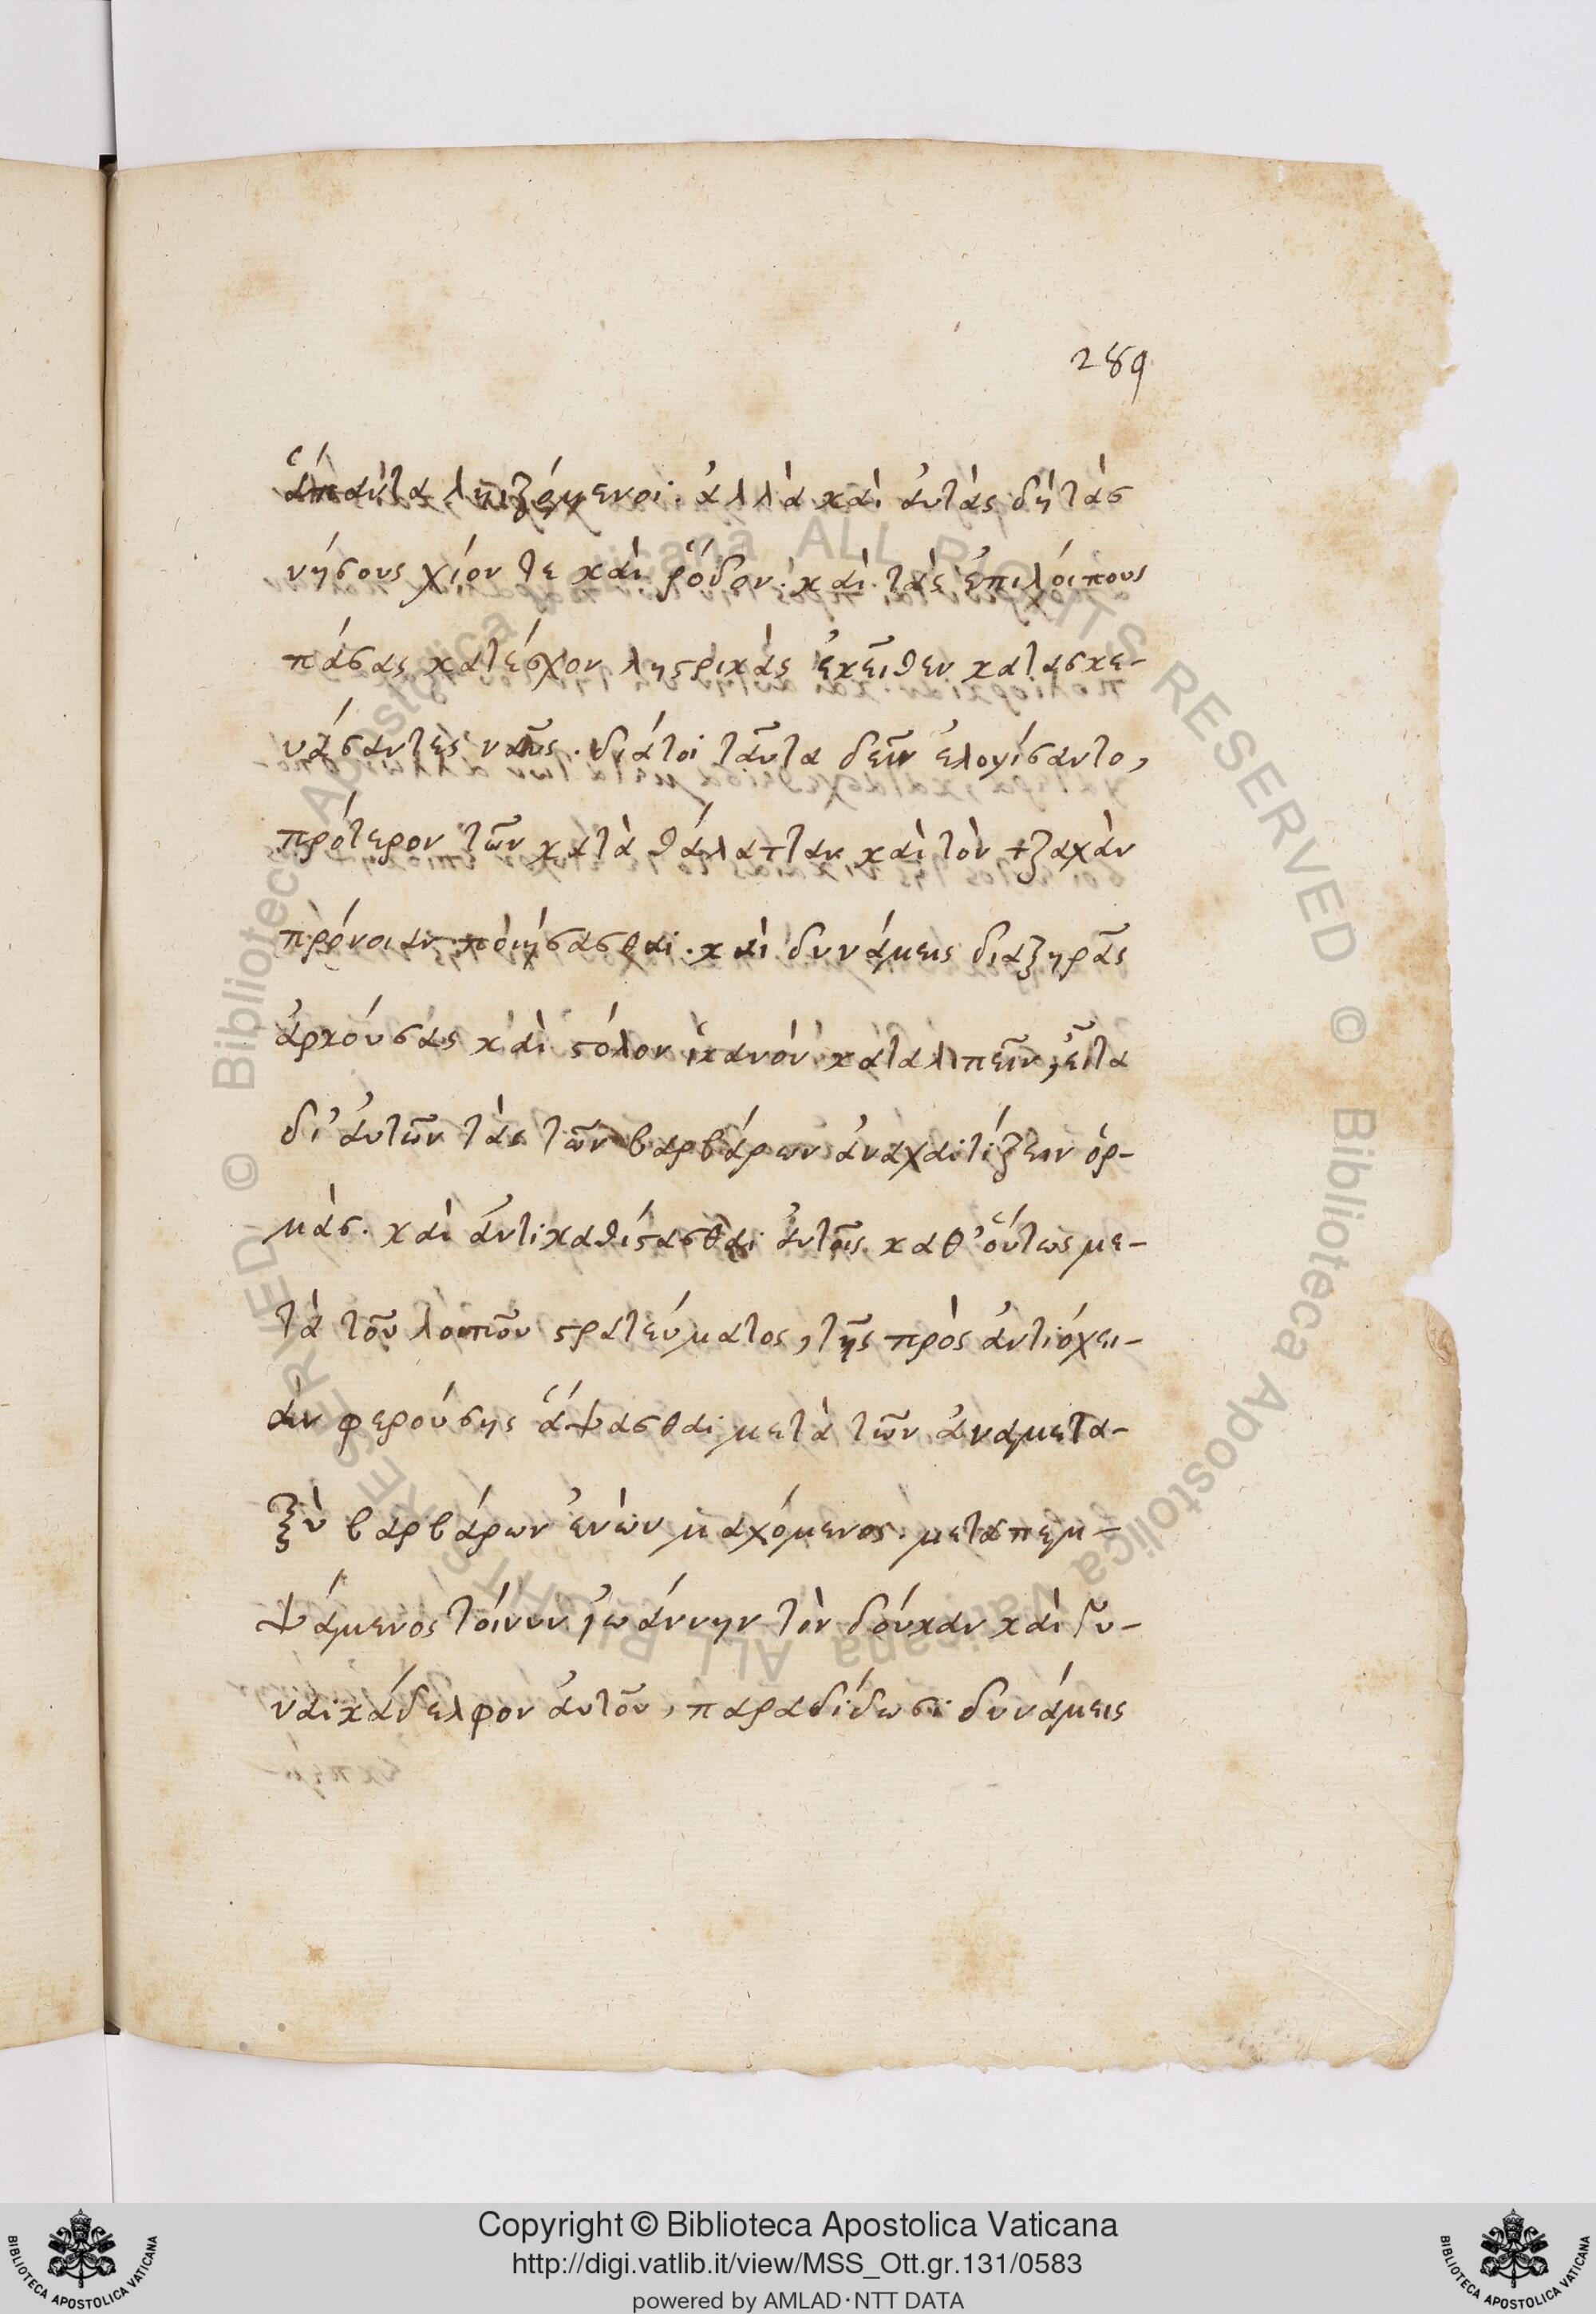 289
ἅπαντα ληιζόμενοι. ἀλλὰ καὶ ἀυτὰς δὴ τὰσ
νήσους χίον τε καὶ ῥόδον. καὶ τὰς ἐπιλόιπους
πάσας κατέσχον ληστρικὰς ἐκεῖθεν κατασκε-
υάσαντες ναῦς. διάτοι ταῦτα δεῖν ἐλογίσαντο,
πρότερον τῶν κατὰ θάλατταν καὶ τὸν τζαχὰν
πρόνοιαν ποιήσασθαι. καὶ δυνάμεις διαξηρᾶς
ἀρκόυσας καὶ στόλον ἱκανὸν καταλιπεῖν, εἶτα
δι' ἀυτῶν τὰς τῶν βαρβάρων ἀναχαιτίζειν ὁρ-
μάσ. καὶ ἀντικαθίστασθαι ἀυτοῖς. καθ' ὅυτως με-
τὰ τοῦ λοιποῦ στρατεύματος, τῆς πρὸς ἀντιόχει-
αν φερούσης ἅψασθαι μετὰ τῶν ἀναμετα-
ξὺ βαρβάρων ἐνὼν μαχόμενος. μεταπεμ-
ψάμενος τόινυν ἰωάννην τὸν δόυκαν καὶ γυ-
ναικάδελφον ἀυτοῦ, παραδίδωσι δυνάμεις
Copyright © Biblioteca Apostolica Vaticana
http://digi.vatlib.it/view/MSS_Ott.gr.131/0583
powered by AMLAD·NTT DATA
BIBLIOTECA APOSTOLICA VATICANA
BIBLIOTECA APOSTOLICA VATICANA
© Biblioteca Apostolica Vaticana ALL RIGHTS RESERVED
© Biblioteca Apostolica Vaticana ALL RIGHTS RESERVED